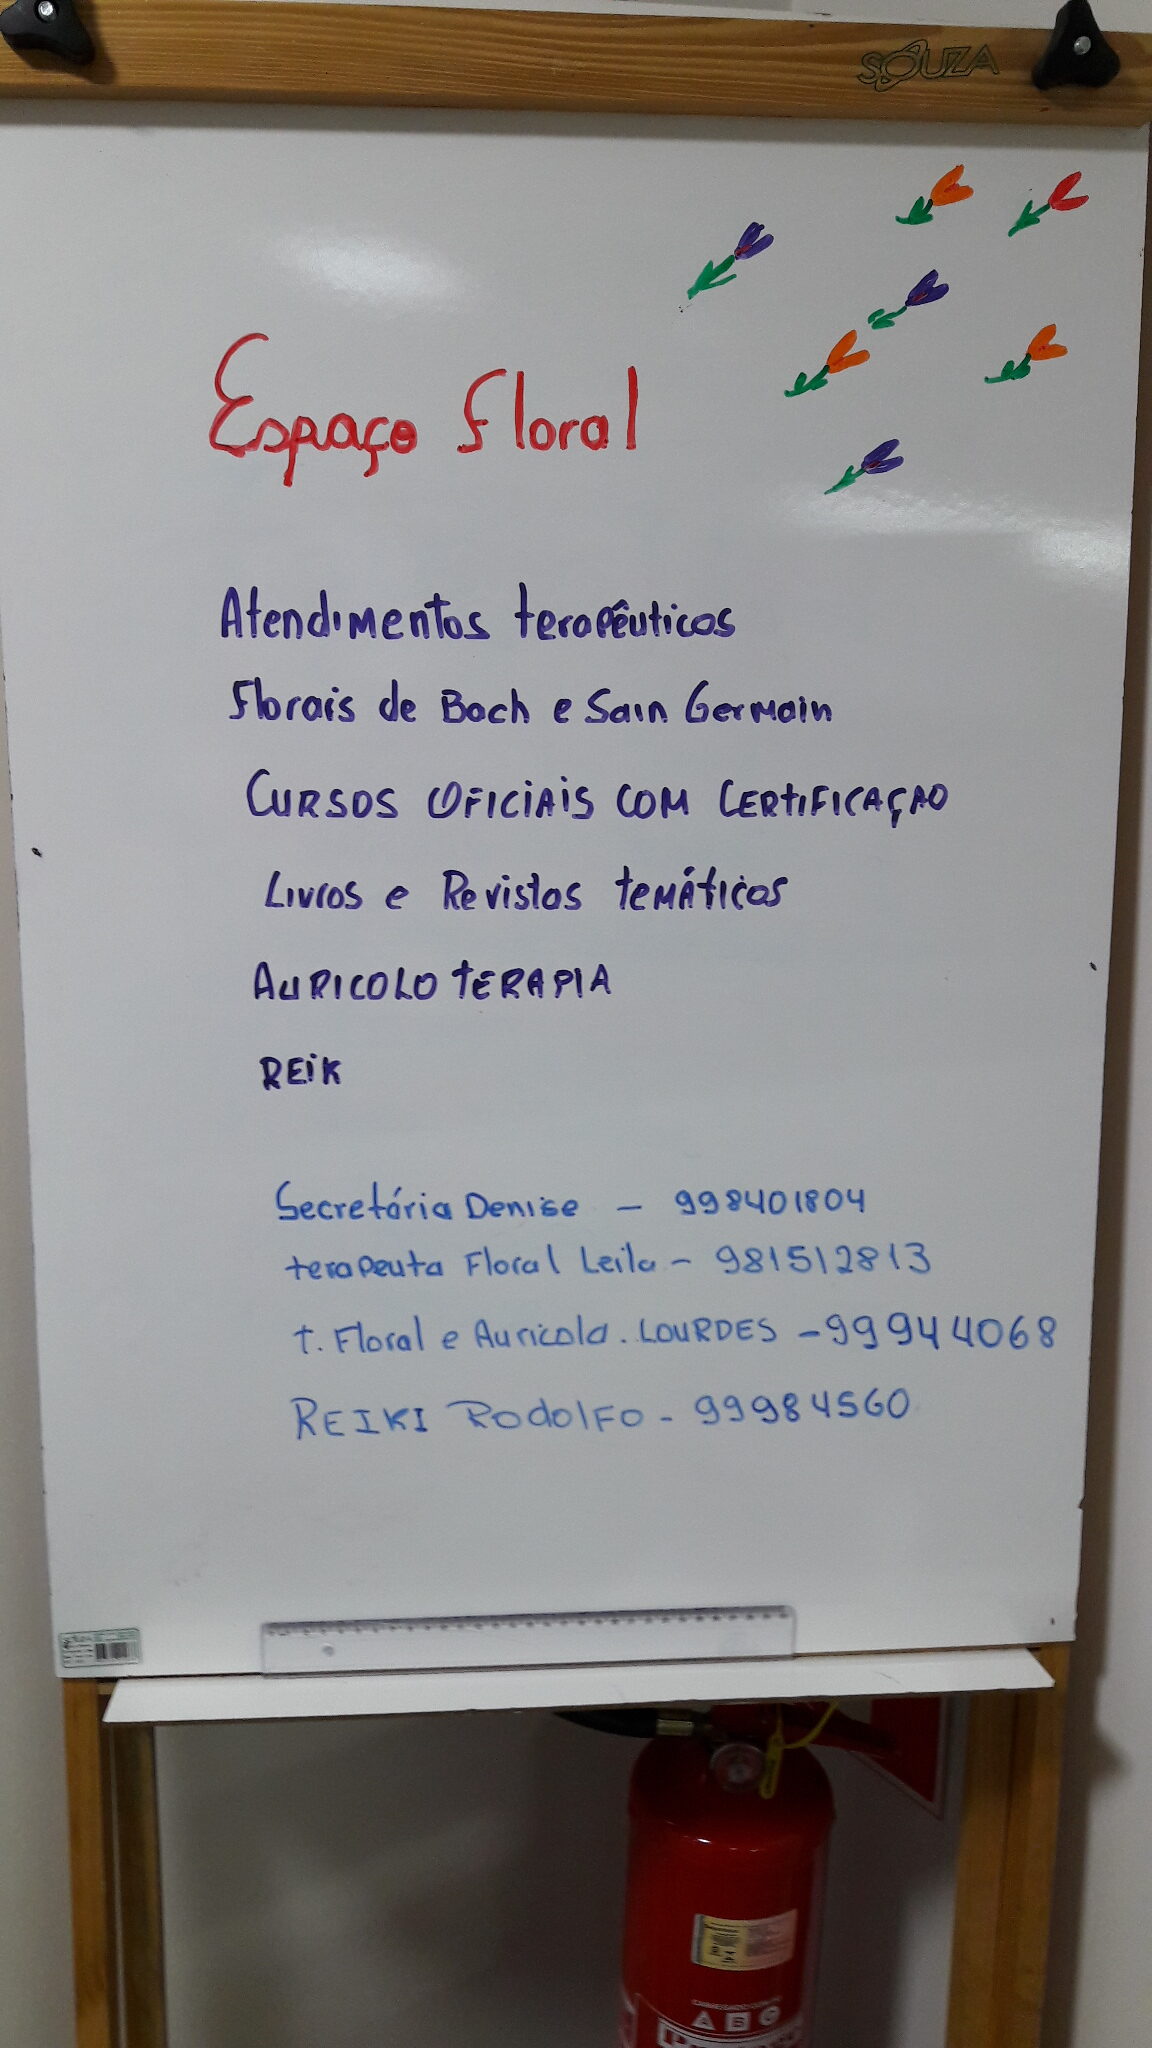 SOUZA
Espaço Floral
Atendimentos terapêuticos
Florais de Bach e Sain Germain
CURSOS OFICIAIS COM CERTIFICAÇAO
Livros e Revistas temáticas
AURICOLO TERAPIA
REIK
Secretária Denise - 998401804
terapeuta Floral Leila - 981512813
t. Floral e Auricola. LOURDES - 99944068
REIKI Rodolfo - 99984560
A B C